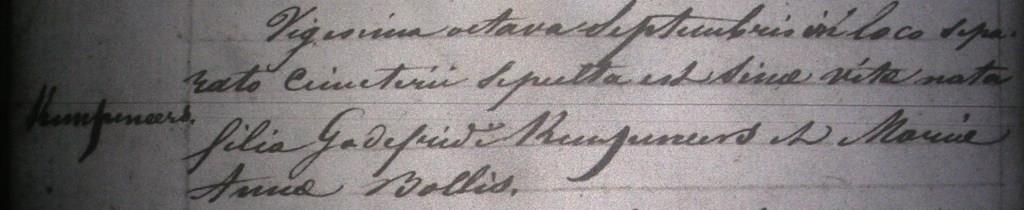 Vigesima octava Septembris in loco sepa-
rato Cimeterii Sepulta est Sinæ vitæ nata
Kempeneers. filia Godefridi Kempeneers et Mariæ
Annæ Bollis.